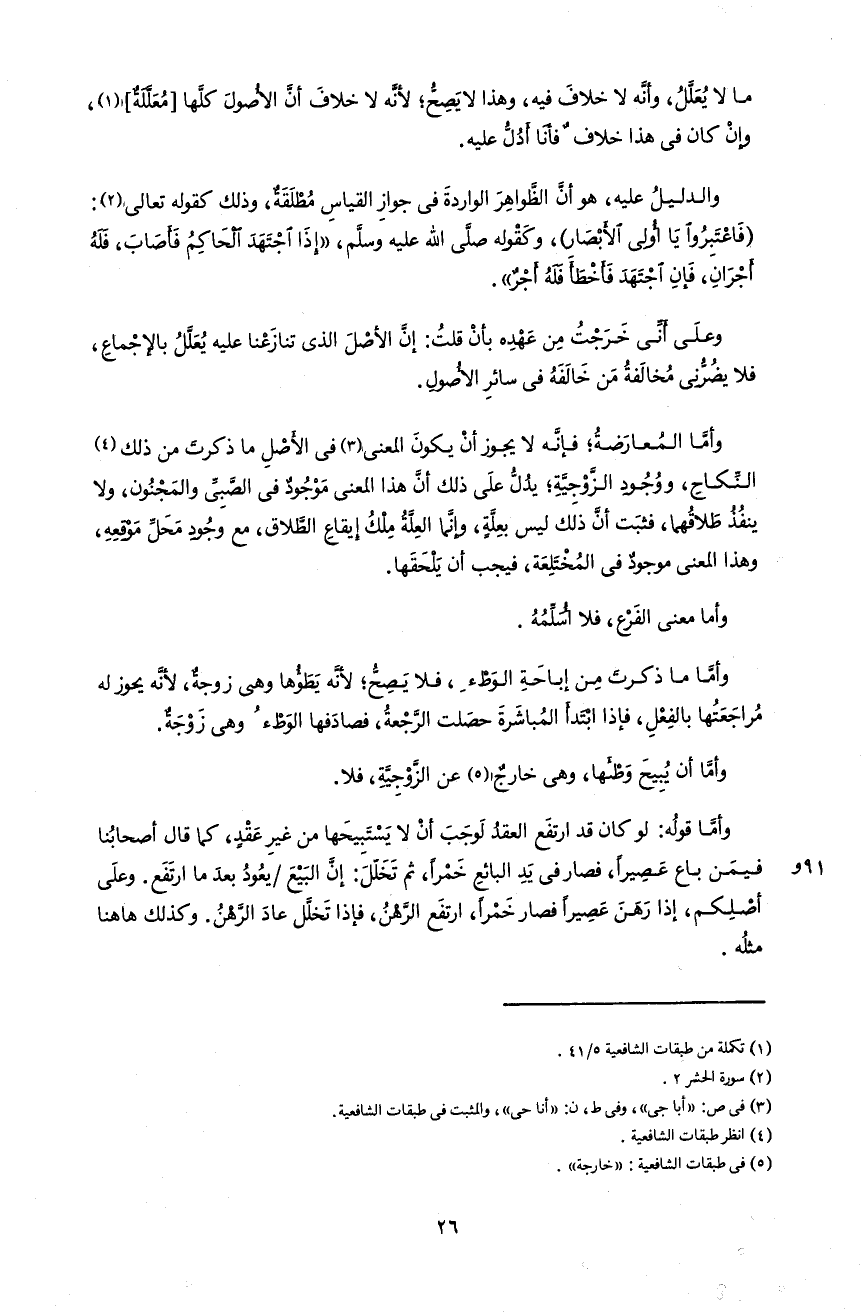 ما لا يُعَلَّلُ، وأنَّه لا خلافَ فيه، وهذا لا يَصِحُّ؛ لأنَّه لا خلافَ أنَّ الأصولَ كلَّها [مُعَلَّلَةٌ](١)،
وإنْ كان فى هذا خلافٌ فأنَا أدُلُّ عليه.
والدليلُ عليه، هو أنَّ الظَّواهِرَ الواردةَ فى جوازِ القياسِ مُطْلَقَةٌ، وذلك كقوله تعالى(٢):
(فَاعْتَبِرُواْ يَا أُولِى ٱلأَبْصَارِ)، وكَقُوله صلَّى الله عليه وسلَّم، «إِذَا ٱجْتَهَدَ ٱلْحَاكِمُ فَأَصَابَ، فَلَهُ
أَجْرَانِ، فَإنِ ٱجْتَهَدَ فَأَخْطَأَ فَلَهُ أَجْرٌ».
وعلَى أنَّنى خَرَجْتُ مِن عَهْدِه بأنْ قلتُ: إنَّ الأصْلَ الذى تنازَعْنا عليه يُعَلَّلُ بالإجْماعِ،
فلا يضُرُّنِى مُخالَفةُ مَن خَالَفَهُ فى سائرِ الأصُولِ.
وأمَّا المُعارَضةُ؛ فإنَّه لا يجوز أنْ يكونَ المعنى(٣) فى الأَصْلِ ما ذكرتَ من ذلك (٤)
النِّكاحِ، ووُجُودِ الزَّوْجِيَّةِ؛ يدُلُّ علَى ذلك أنَّ هذا المعنى مَوْجُودٌ فى الصَّبِىِّ والمَجْنُون، ولا
ينفُذُ طَلاقُهما، فثبَت أنَّ ذلك ليس بعِلَّةٍ، وإنَّما العِلَّةُ مِلْكُ إيقاعِ الطَّلاق، مع وجُودِ مَحَلِّ مَوْقِعِهِ،
وهذا المعنى موجودٌ فى المُخْتَلِعَة، فيجب أن يَلْحَقَها.
وأما معنى الفَرْعِ، فلا أُسَلِّمُهُ .
وأمَّا ما ذكرتَ مِن إباحَةِ الوَطْءِ، فلا يَصِحُّ؛ لأنَّه يَطَؤُها وهى زوجةٌ، لأنَّه يجوز له
مُراجَعَتُها بالفِعْلِ، فإذا ابْتَدأَ المُباشَرةَ حصَلت الرَّجْعةُ، فصادَفها الوَطْءُ وهى زَوْجَةٌ.
وأمَّا أن يُبِيحَ وَطْئَها، وهى خارجٌ(٥) عن الزَّوْجِيَّةِ، فلا.
وأمَّا قولُه: لو كان قد ارتفَع العقدُ لَوجَبَ أنْ لا يَسْتَبيحَها من غيرِ عَقْدٍ، كما قال أصحابُنا
فيمَن باع عَصِيراً، فصار فى يَدِ البائعِ خَمْراً، ثم تَخَلَّلَ: إنَّ البَيْعَ /يعُودُ بعدَ ما ارتَفَع. وعلَى ٩١و
أصْلِكم، إذا رَهَنَ عَصِيراً فصار خَمْراً، ارتفَع الرَّهْنُ، فإذا تخلَّل عادَ الرَّهْنُ. وكذلك هاهنا
مثلُه .
(١) تكملة من طبقات الشافعية ٤١/٥ .
(٢) سورة الحشر ٢ .
(٣) فى ص: «أبا جى»، وفى ط، ن: «أنا حى»، والمثبت فى طبقات الشافعية.
(٤) انظر طبقات الشافعية .
(٥) فى طبقات الشافعية : «خارجة» .
٢٦